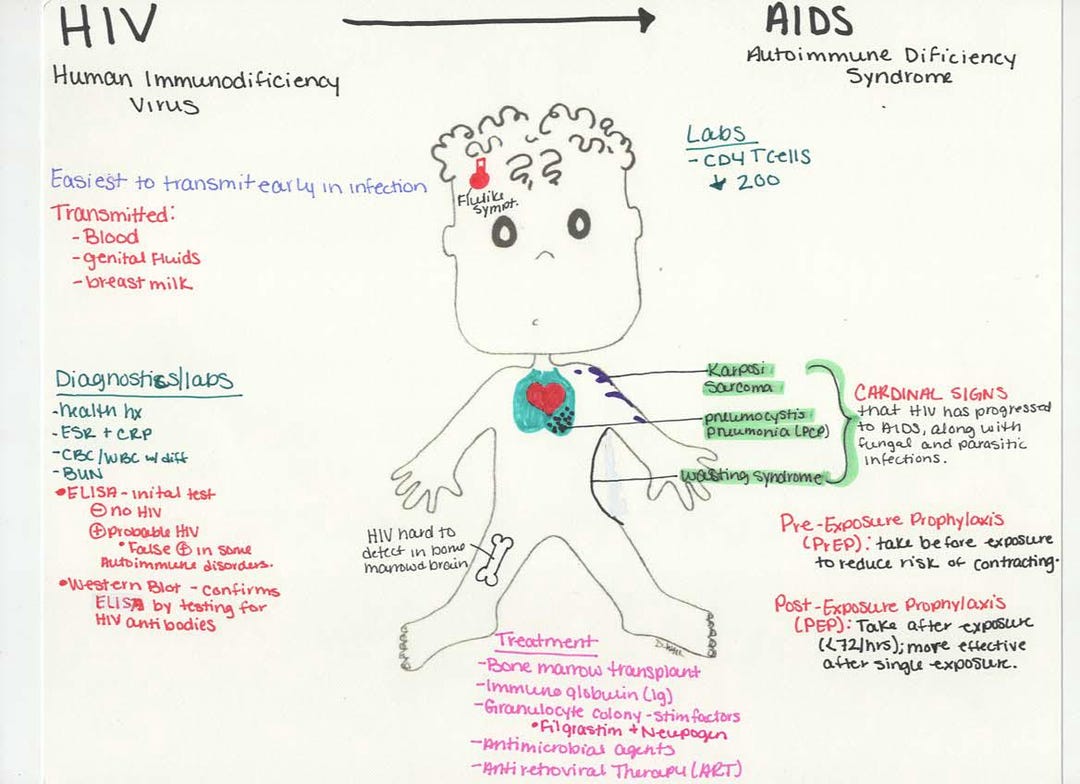 HIV
Human Immunodificiency
Virus
AIDS
Autoimmune Dificiency
Syndrome
Easiest to transmit early in infection
Transmitted:
- Blood
- genital fluids
- breast milk
Flulike
Sympt.
Labs
- CD4 T cells
↓ 200
Diagnostics/labs
- health hx
- ESR + CRP
- CBC/WBC w/ diff
- BUN
• ELISA - inital test
⊖ no HIV
⊕ probable HIV
• False ⊕ in some
Autoimmune disorders.
• Western Blot - confirms
ELISA by testing for
HIV antibodies
HIV hard to
detect in bone
marrow d brain
Karposi
Sarcoma
pneumocystis
pneumonia (PCP)
wasting syndrome
CARDINAL SIGNS
that HIV has progressed
to AIDS, along with
fungal and parasitic
infections.
Pre-Exposure Prophylaxis
(PrEP): take before exposure
to reduce risk of contracting.
Post-Exposure Prophylaxis
(PEP): Take after exposure
(<72/hrs); more effective
after single exposure.
Treatment
- Bone marrow transplant
- Immunoglobulin (Ig)
- Granulocyte colony-stim factors
• Filgrastim + Neupogen
- Antimicrobial agents
- Antiretroviral Therapy (ART)